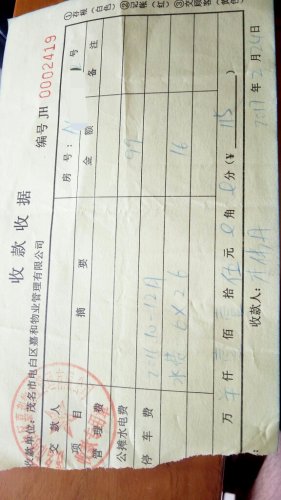 收款收据
编号 JH 0002419
收款单位：茂名市电白区嘉和物业管理有限公司
交款人
房号：
号
项目 摘要 金额 备注
管理费
公摊水电费 2016.10-12月 99
停车费 水费 6×2.6 16
万 仟 壹佰 壹拾 伍元 0角 0分（¥ 115
收款人：
2017年2月24日
①存根（白色） ②记帐（红） ③交顾客（黄色